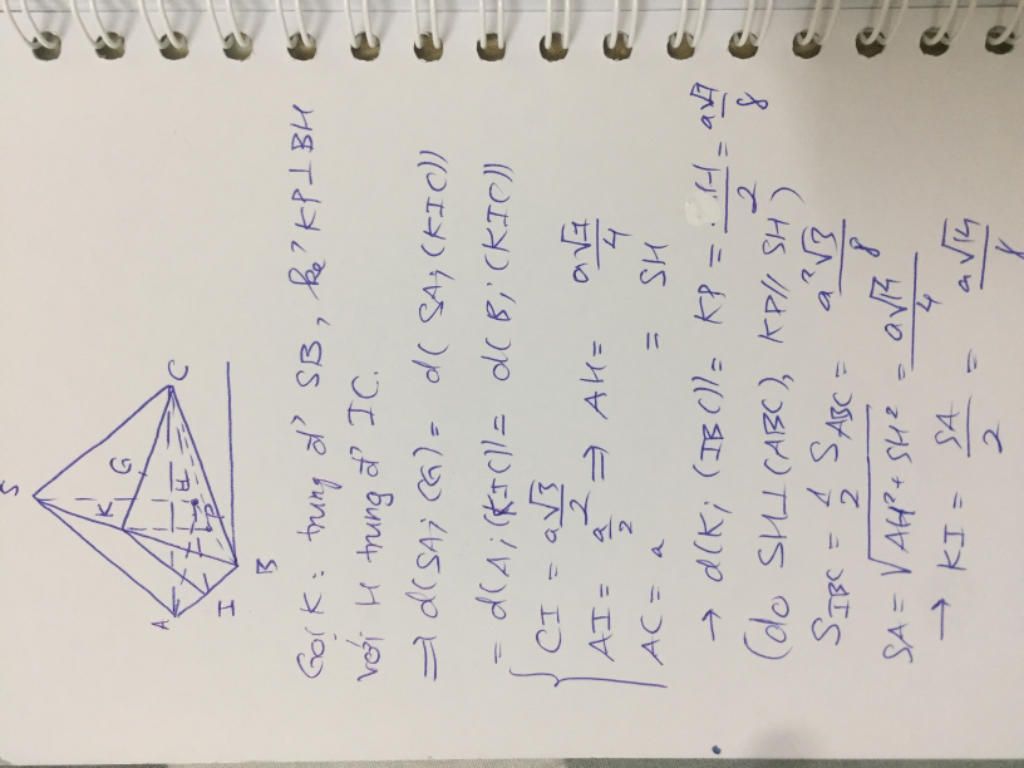 S
K
G
C
A
H
P
I
B
Gọi K: trung đ' SB, kẻ KP ⊥ BH
với H trung đ' IC.
⇒ d(SA; CG) = d(SA, (KIC))
= d(A; (KIC)) = d(B; (KIC))
{ CI = a√3/2
AI = a/2 ⇒ AH = a√7/4
AC = a = SH
→ d(K; (IBC)) = KP = H/2 = a√7/8
(do SH ⊥ (ABC), KP // SH)
S_IBC = 1/2 S_ABC = a²√3/8
SA = √(AH² + SH²) = a√14/4
→ KI = SA/2 = a√14/8